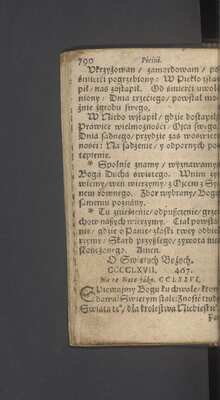 790 Pieśni.
Vkrzyżowan / zamordowan / po
śmierci pogrzebiony: W Piekło zstą
pił / nas zastąpił. Od śmierci uwol
niony / Dnia trzeciego / powstał mo
żnie z grobu swego,
W Niebo wstąpił / gdzie dostąpił
Prawice wielmożności / Oyca swego
Dnia sądnego / przydzie zás w
ności: Na sądzenie / y odpornych po
tępienie.
* Społnie znamy / wyznawamy
Bogá Duchá świętego. Wnim ży
wiemy / wen wierzymy / z Oycem z Sy
nem rownego. Zbor wybrány / Bogu
samemu poznány.
* Tu zniesienie / odpuszczenie / grze
chow nászych wierzymy. Ciał powstá
nie / gdzie o Pánie / z łáski twey odbie
rzymy / Skarb przyszłego / żywotá nie
skończonego. Amen.
O Świętych Bożych.
CCCCLXVII. 467.
Na tę Notę jáko. CCLXXVI.
Spiewaymy Bogu ku chwale: kro
Dawá Świętym stałe: Znosić trud
Świátá te° / dla krolestwá Niebieskie°